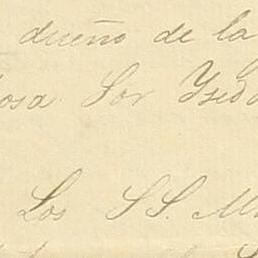 dueño de la
osa Sor Ysed
Los SS. M